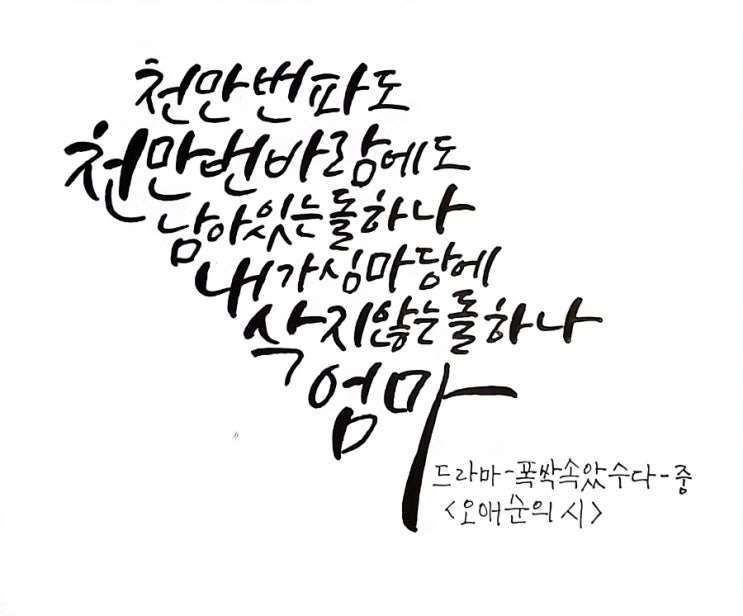 천만번파도
천만번바람에도
남아있는돌하나
내가심마당에
삭지않는돌하나
엄마
드라마-폭싹속았수다-중
<오애순의 시>